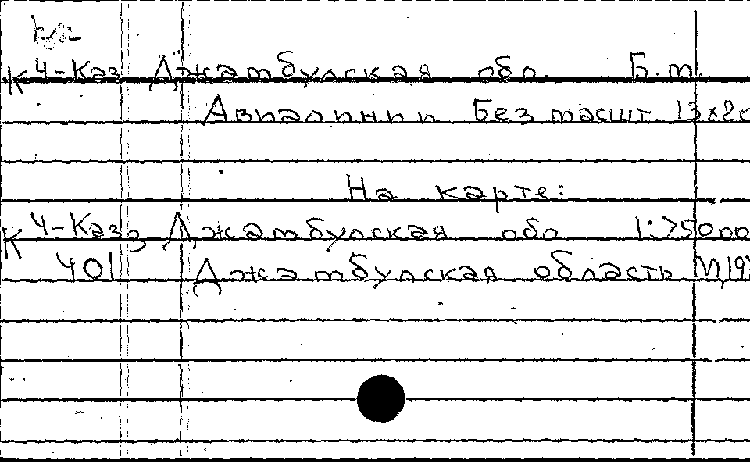 К4-Каз Джамбулская обл. Б.м.
Авиалинии Без масшт. 13х2
На карте:
К4-Каз Джамбулская обл 1:75000
401 Джамбулская область М,19